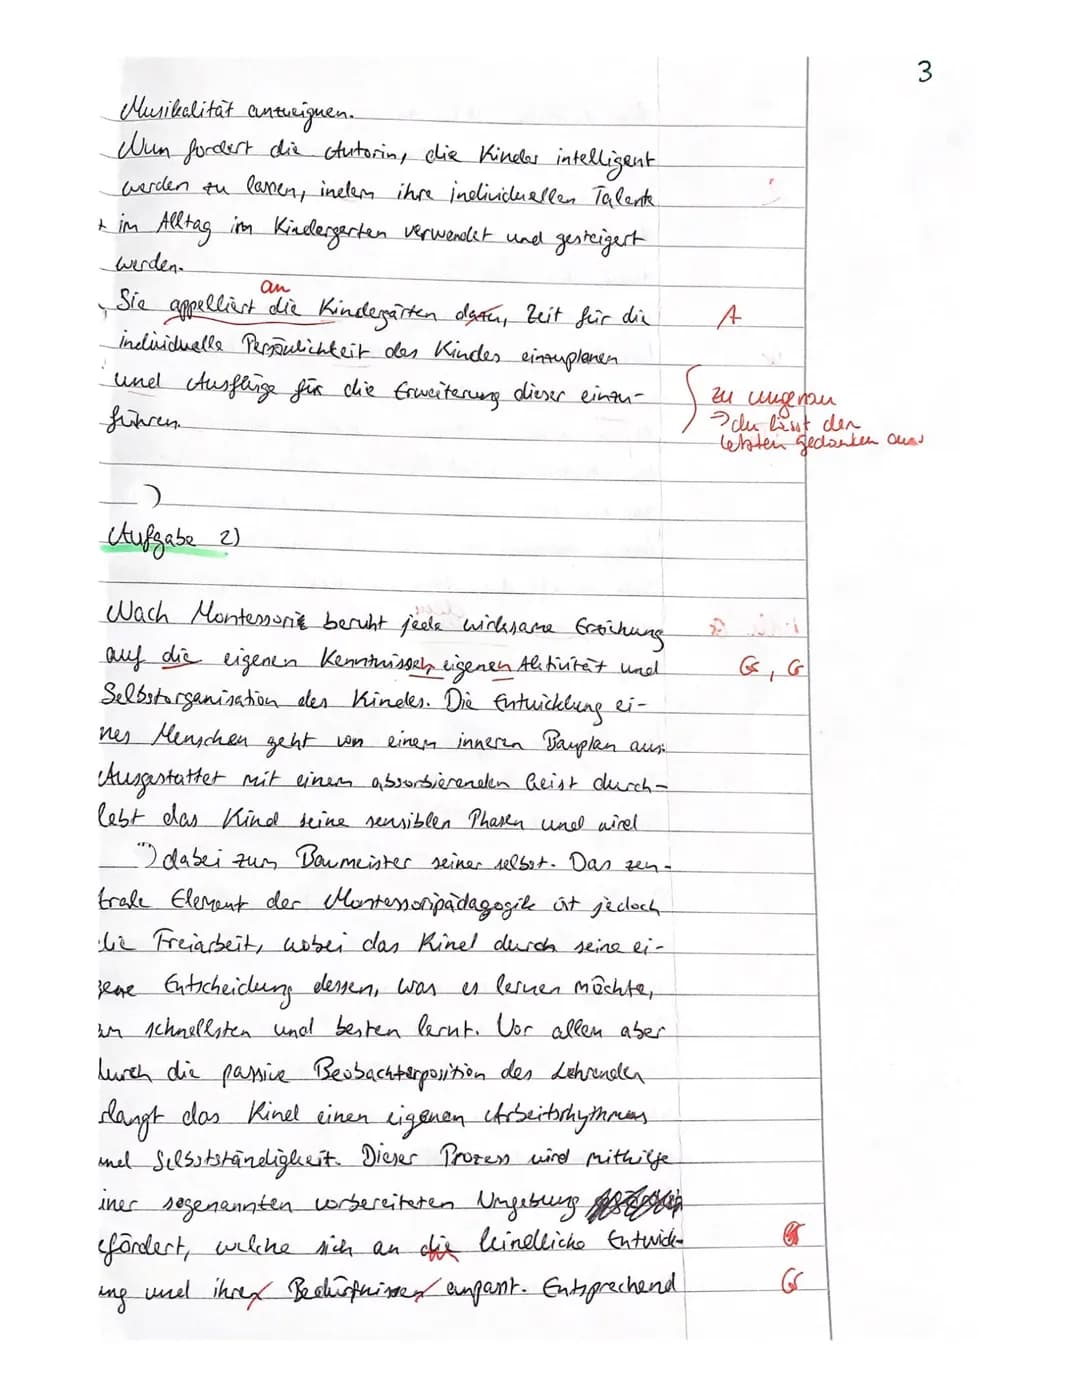 3
Musikalität anzueignen.
Nun fordert die Autorin, die Kinder intelligent
werden zu lassen, indem ihre individuellen Talente
+ im Alltag im Kindergarten verwendet und gesteigert
werden.
an
Sie appelliert die Kindergärten dazu, Zeit für die A
individuelle Persönlichkeit des Kindes einzuplanen
und Ausflüge für die Erweiterung dieser einzu-
führen.
zu ungenau
→ du lässt den
letzten Gedanken aus
Aufgabe 2)
Nach Montessori beruht jede wirksame Erziehung
auf die eigenen Kenntnissen eigenen Aktivität und Gr, G
Selbstorganisation des Kindes. Die Entwicklung ei-
nes Menschen geht von einem inneren Bauplan aus.
Ausgestattet mit einem absorbierenden Geist durch-
lebt das Kind seine sensiblen Phasen und wird
dabei zum Baumeister seiner selbst. Das zen-
trale Element der Montessoripädagogik ist jedoch
die Freiarbeit, wobei das Kind durch seine ei-
gene Entscheidung dessen, was es lernen möchte,
am schnellsten und besten lernt. Vor allem aber
durch die passive Beobachterposition des Lehrenden
rlangt das Kind einen eigenen Arbeitsrhythmus
und Selbstständigkeit. Dieser Prozess wird mithilfe
iner sogenannten vorbereiteten Umgebung
efördert, welche sich an die kindliche Entwick-
ung und ihren Bedürfnissen anpasst. Entsprechend Gr